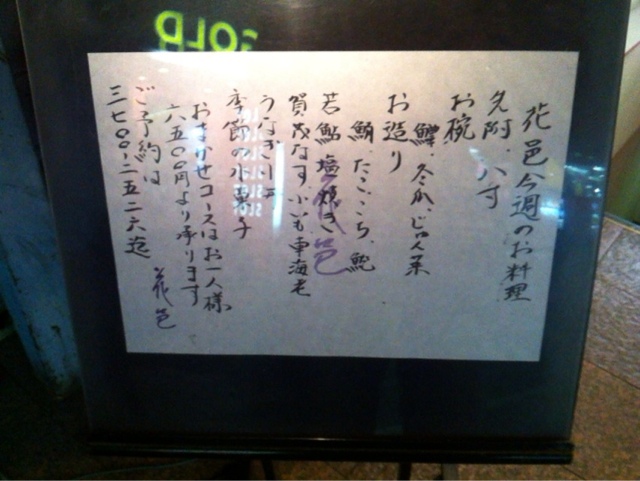 花邑今週のお料理
先附、八寸
お椀
鱧、冬瓜、じゅん菜
お造り
鮪、たこ
若鮎塩焼き
賀茂なす 小いも 車海老
うなぎ
季節の水菓子
おまかせコースはお一人様
六五〇〇円より承ります
ご予約は
三七〇〇-二五二六迄
花邑
花邑
GOLD